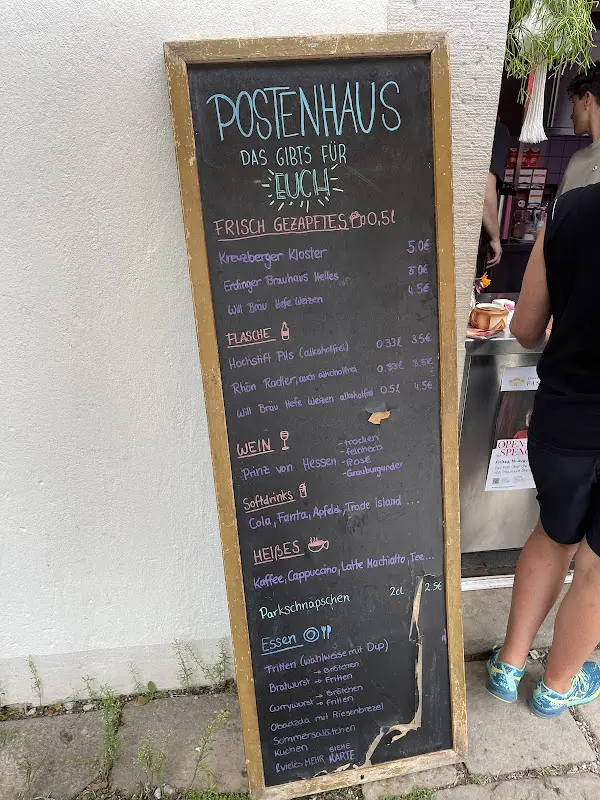 POSTENHAUS
DAS GIBTS FÜR
EUCH
FRISCH GEZAPFTES 0,5l
Kreuzberger Kloster 5.0€
Erdinger Brauhaus Helles 5.0€
Will Bräu Hefe Weizen 4.5€
FLASCHE
Hochstift Pils (alkoholfrei) 0.33l 3.5€
Rhön Radler, auch alkoholfrei 0.33l 3.5€
Will Bräu Hefe Weizen alkoholfrei 0.5l 4.5€
WEIN
Prinz von Hessen
-trocken
-feinherb
-Rosé
-Grauburgunder
Softdrinks
Cola, Fanta, Apfels, Trade Island ...
HEIßES
Kaffee, Cappuccino, Latte Machiatto, Tee...
Parkschnäpschen 2cl 2.5€
Essen
Fritten (wahlweise mit Dip)
Bratwurst → Brötchen
→ Fritten
Currywurst → Brötchen
→ Fritten
Obazda mit Riesenbrezel
Sommersalätchen
Kuchen
& vieles MEHR SIEHE KARTE
OPEN